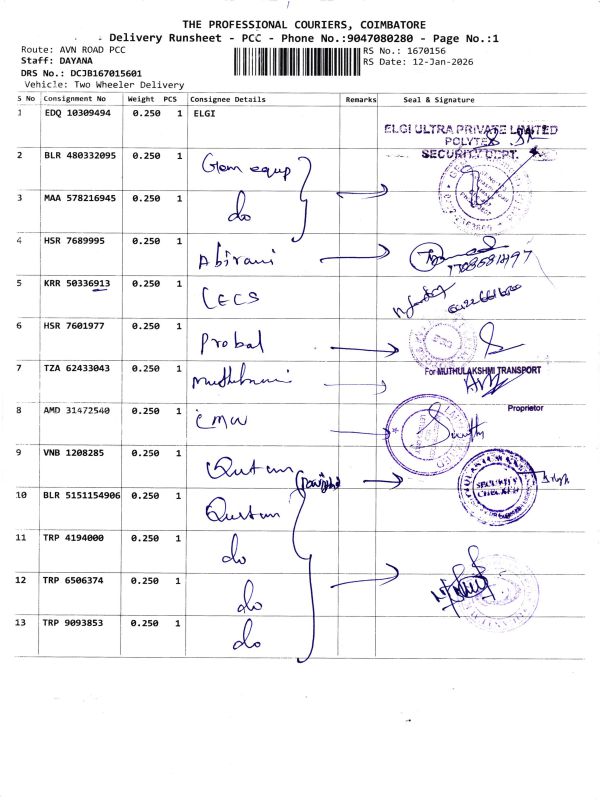 THE PROFESSIONAL COURIERS, COIMBATORE
Delivery Runsheet - PCC - Phone No.:9047080280 - Page No.:1
Route: AVN ROAD PCC RS No.: 1670156
Staff: DAYANA RS Date: 12-Jan-2026
DRS No.: DCJB167015601
Vehicle: Two Wheeler Delivery
S No Consignment No Weight PCS Consignee Details Remarks Seal & Signature
1 EDQ 10309494 0.250 1 ELGI
ELGI ULTRA PRIVATE LIMITED
POLYTEX
SECURITY DEPT.
2 BLR 480332095 0.250 1 Glem equp
3 MAA 578216945 0.250 1 do
4 HSR 7689995 0.250 1 Abirani
5 KRR 50336913 0.250 1 CECS
6 HSR 7601977 0.250 1 Probal
7 TZA 62433043 0.250 1 For MUTHULAKSHMI TRANSPORT
Proprietor
8 AMD 31472540 0.250 1
9 VNB 1208285 0.250 1
SECURITY
CHECKED
10 BLR 5151154906 0.250 1
11 TRP 4194000 0.250 1 do
12 TRP 6506374 0.250 1 do
13 TRP 9093853 0.250 1 do